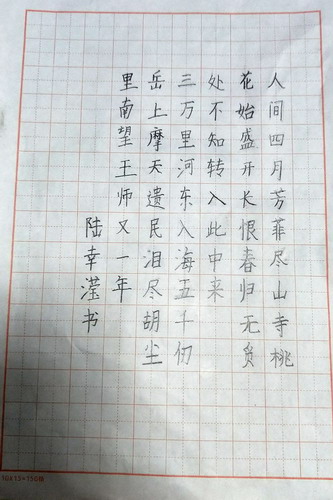 人间四月芳菲尽山寺桃
花始盛开长恨春归无
处不知转入此中来
三万里河东入海五千仞
岳上摩天遗民泪尽胡尘
里南望王师又一年
陆幸滢书
10×15=150格